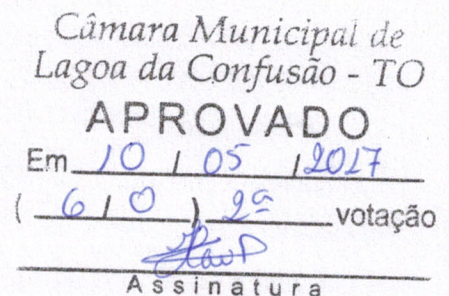 Câmara Municipal de
Lagoa da Confusão - TO
APROVADO
Em 10 / 05 / 2017
( 6 / 0 ) 2ª votação
Assinatura